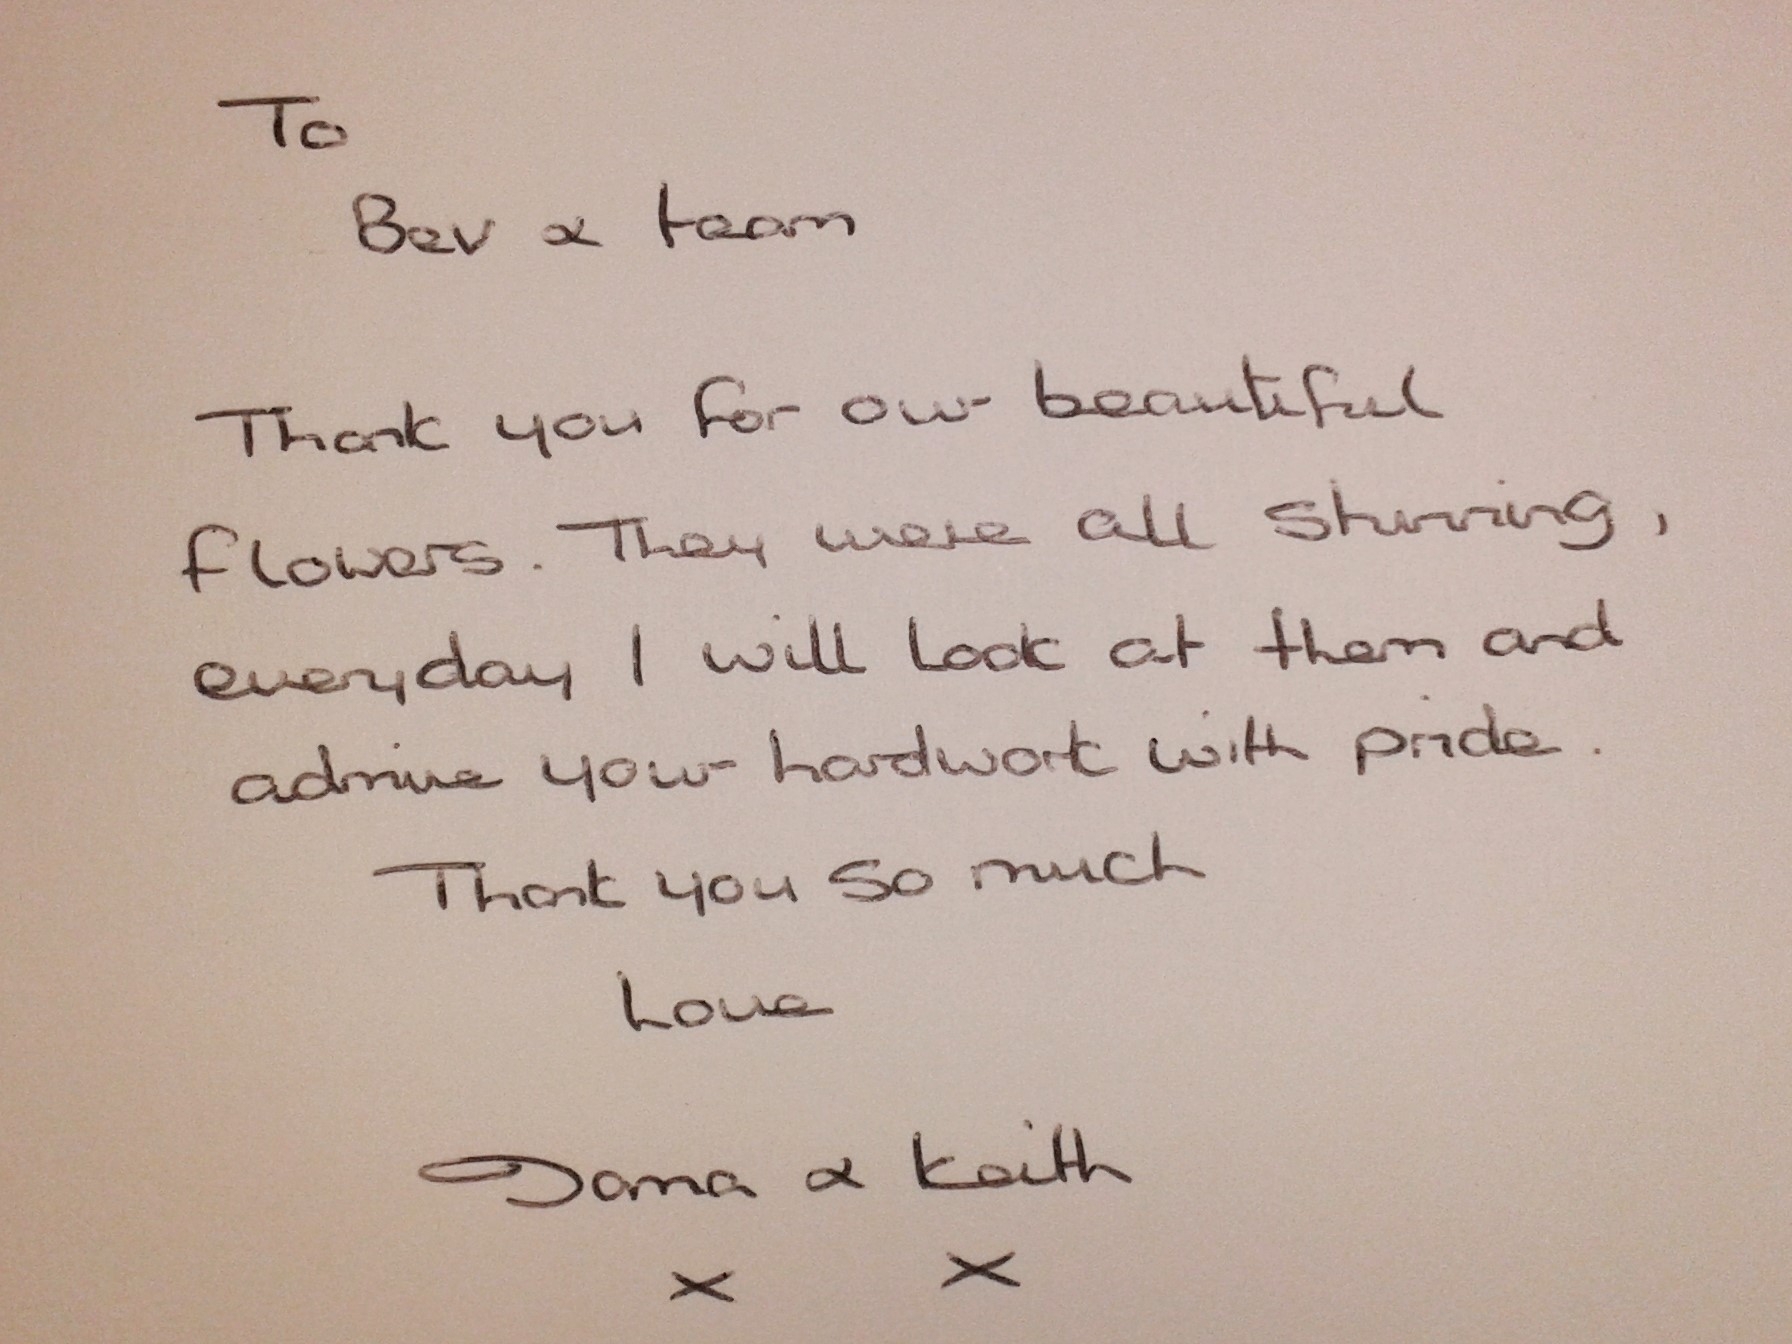 To
Bev & team
Thank you for our beautiful
flowers. They were all stunning,
everyday I will look at them and
admire your hardwork with pride.
Thank you so much
Love
& Keith
x x